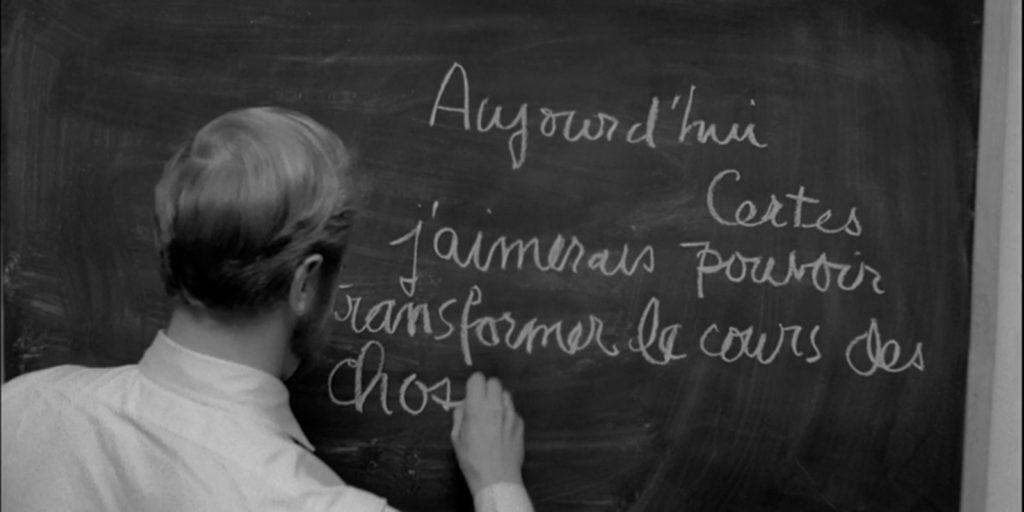 Aujourd'hui
Certes
j'aimerais pouvoir
transformer le cours des
chos